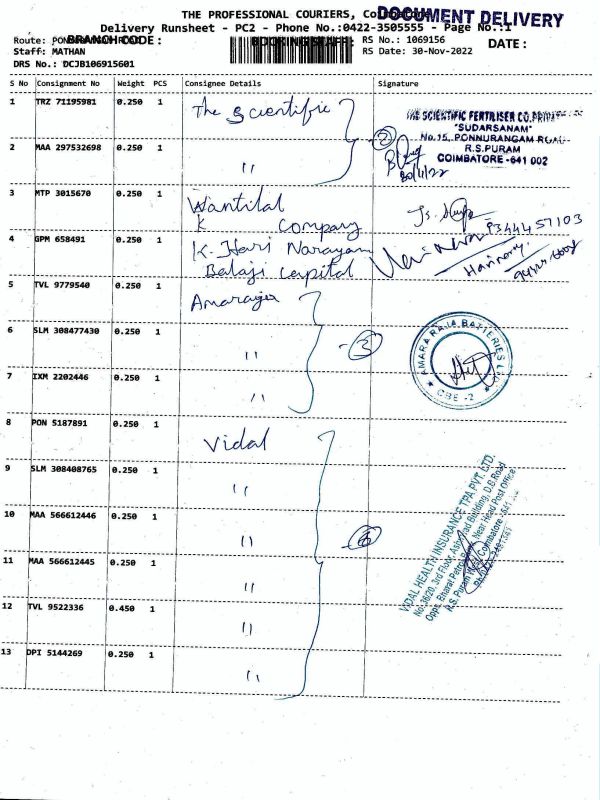 THE PROFESSIONAL COURIERS, Coimbatore
DOCUMENT DELIVERY
Delivery Runsheet - PC2 - Phone No.:0422-3505555 - Page No.:1
BRANCH CODE :
DATE :
Route:
RS No.: 1069156
Staff: MATHAN
RS Date: 30-Nov-2022
DRS No.: DCJB106915601
S No Consignment No Weight PCS Consignee Details Signature
1 TRZ 71195981 0.250 1 The Scientific
THE SCIENTIFIC FERTILISER CO.PRIVATE
"SUDARSANAM"
No.15, PONNURANGAM ROAD
R.S.PURAM
COIMBATORE - 641 002
2
30/11/22
2 MAA 297532698 0.250 1 "
3 MTP 3015670 0.250 1 Wantilal
K Company
9344457103
4 GPM 658491 0.250 1 K. Hari Narayan
Balaji Capital
5 TVL 9779540 0.250 1 Amararaja
6 SLM 308477430 0.250 1 " - 3
AMARA RAJA BATTERIES LTD.
CBE - 2
7 IXM 2202446 0.250 1 "
8 PON 5187891 0.250 1 Vidal
9 SLM 308408765 0.250 1 "
10 MAA 566612446 0.250 1 " - 6
VIDAL HEALTH INSURANCE TPA PVT. LTD.
No:36/20, 3rd Floor, Building, D.B.Road
Opp. Bharat Petrol Near Head Post Office
R.S. Puram Coimbatore - 641
11 MAA 566612445 0.250 1 "
12 TVL 9522336 0.450 1 "
13 DPI 5144269 0.250 1 "